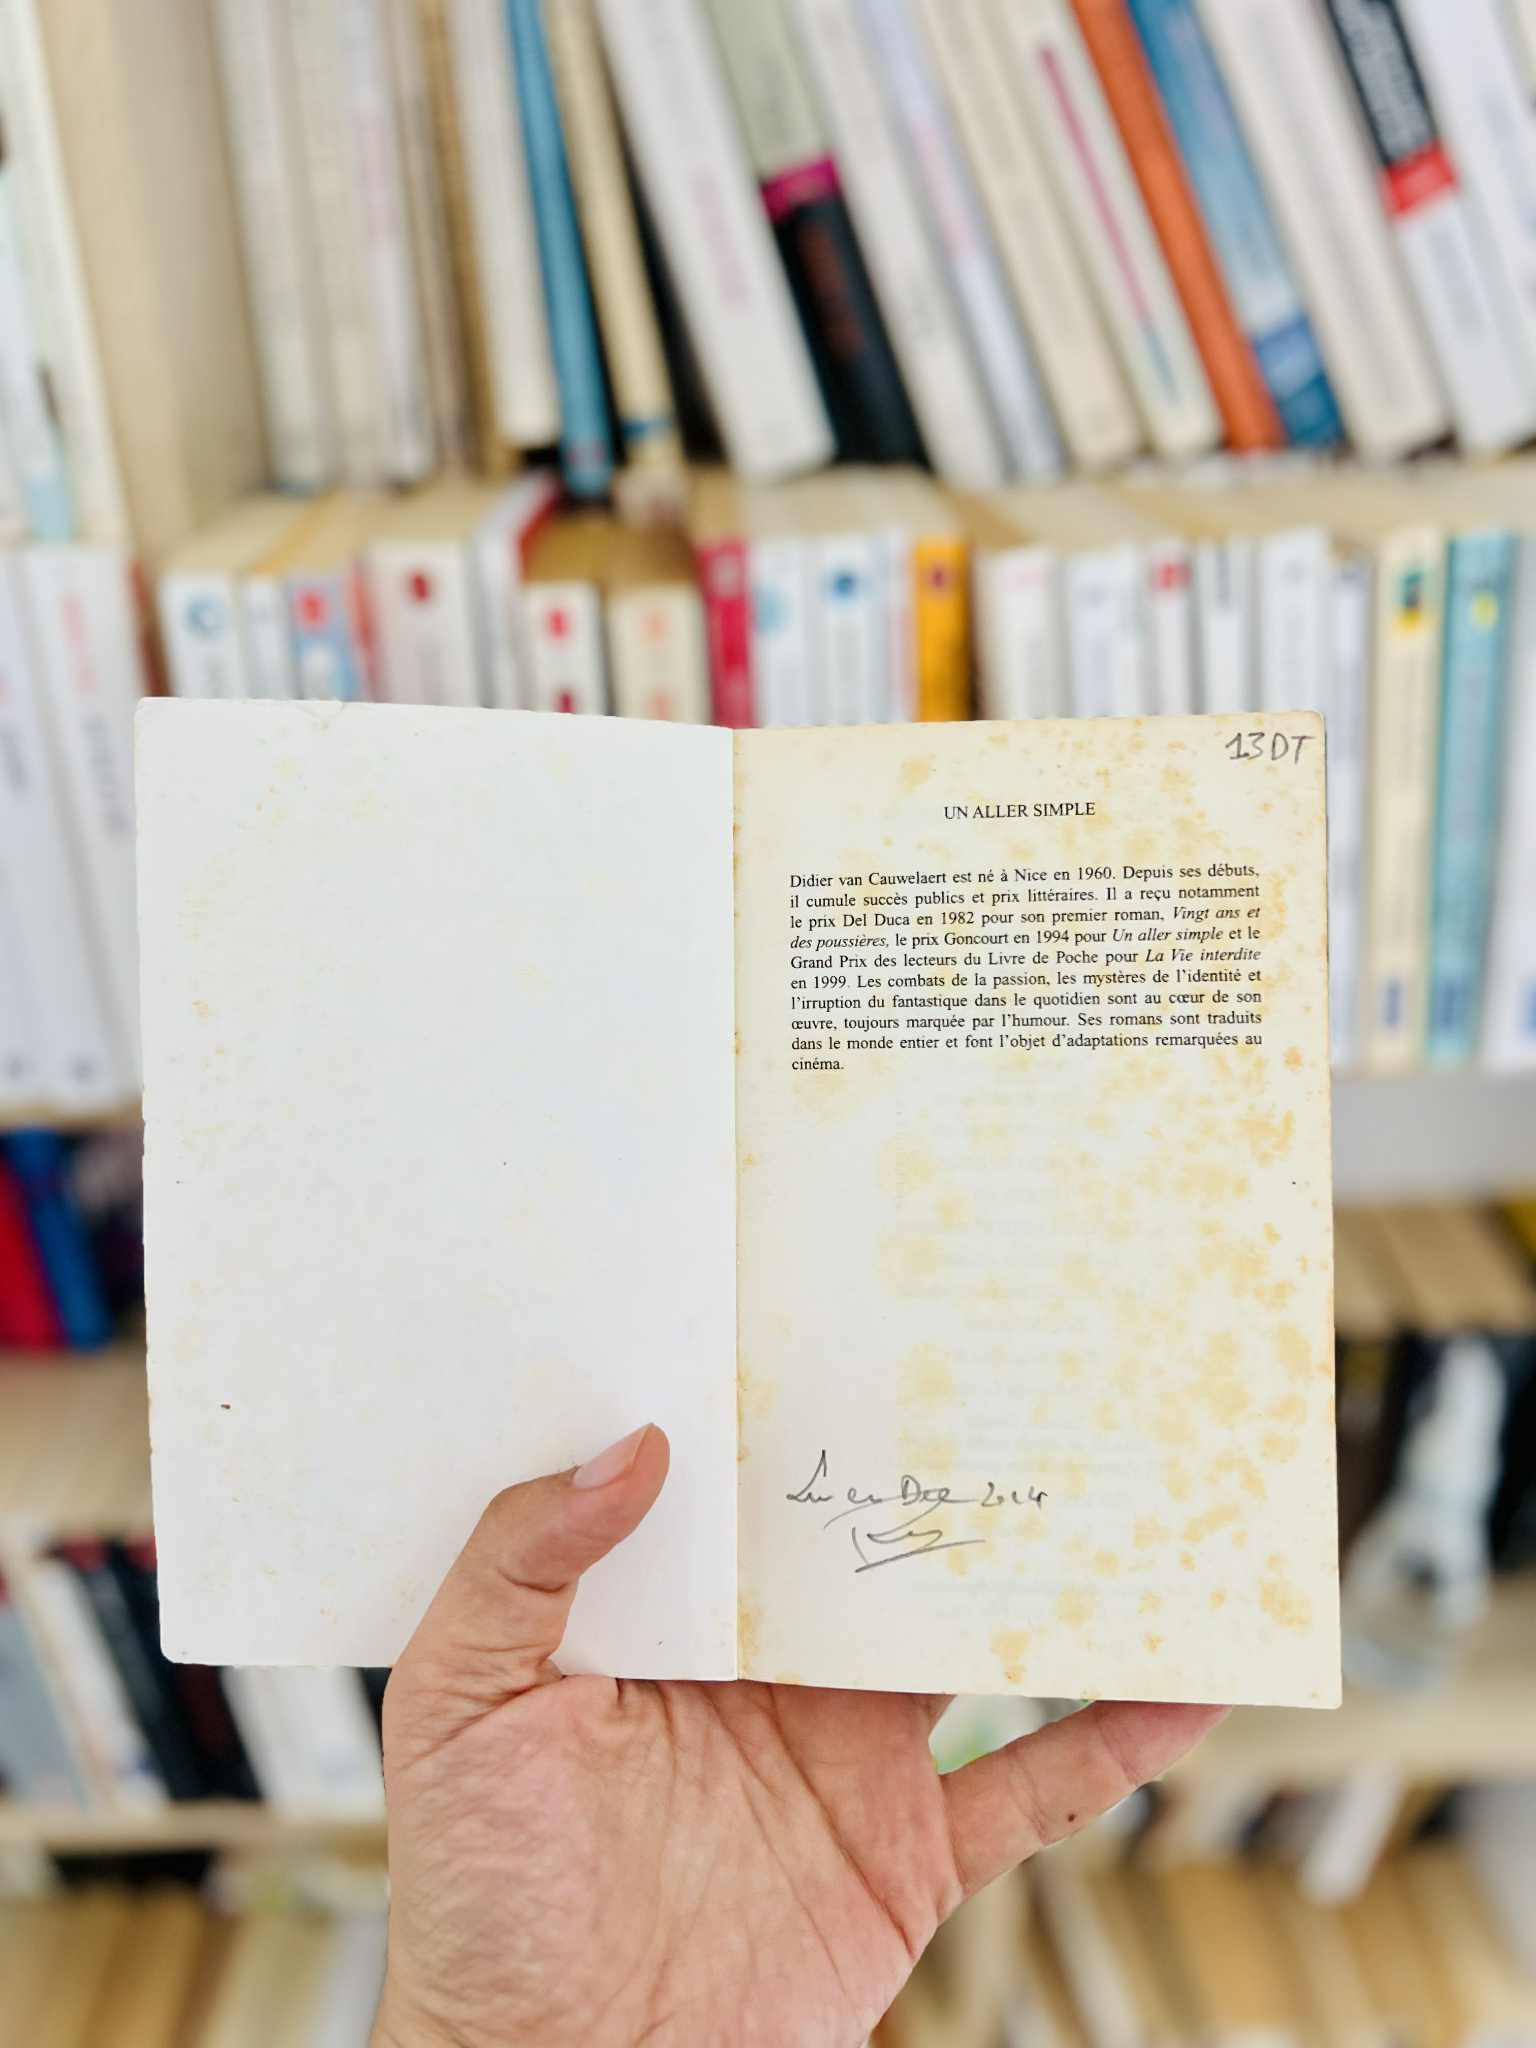 13DT
UN ALLER SIMPLE
Didier van Cauwelaert est né à Nice en 1960. Depuis ses débuts,
il cumule succès publics et prix littéraires. Il a reçu notamment
le prix Del Duca en 1982 pour son premier roman, Vingt ans et
des poussières, le prix Goncourt en 1994 pour Un aller simple et le
Grand Prix des lecteurs du Livre de Poche pour La Vie interdite
en 1999. Les combats de la passion, les mystères de l'identité et
l'irruption du fantastique dans le quotidien sont au cœur de son
œuvre, toujours marquée par l'humour. Ses romans sont traduits
dans le monde entier et font l'objet d'adaptations remarquées au
cinéma.
Lu en Dec 2014